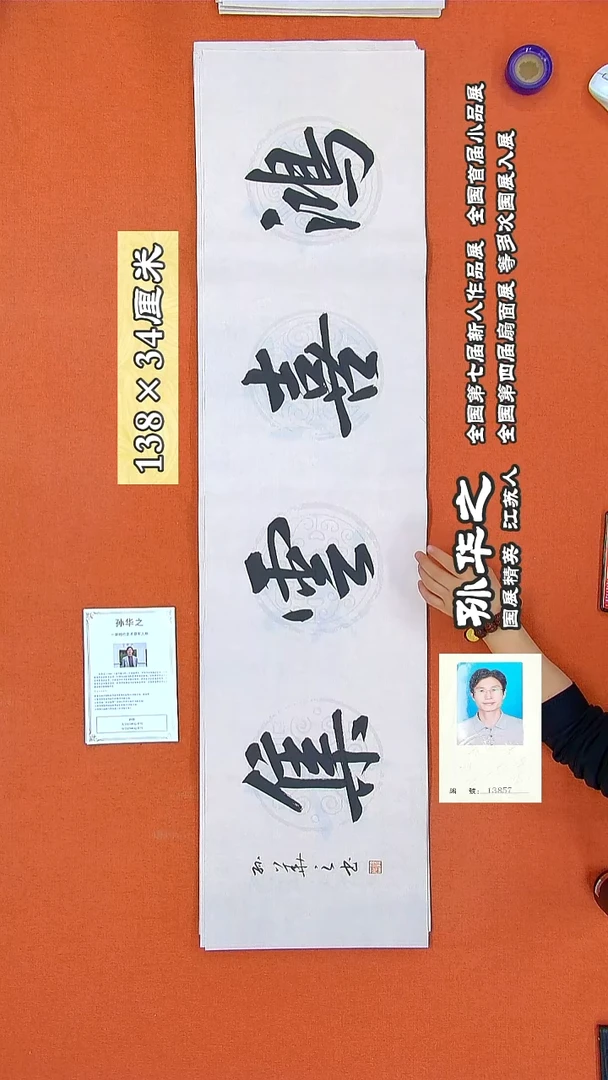 138×34厘米
鴻喜雲集
孙華之书
孙华之
全国第七届新人作品展 全国首届小品展
国展精英 江苏人
全国第四届扇面展 等多次国展入展
孙华之
编 號：13857